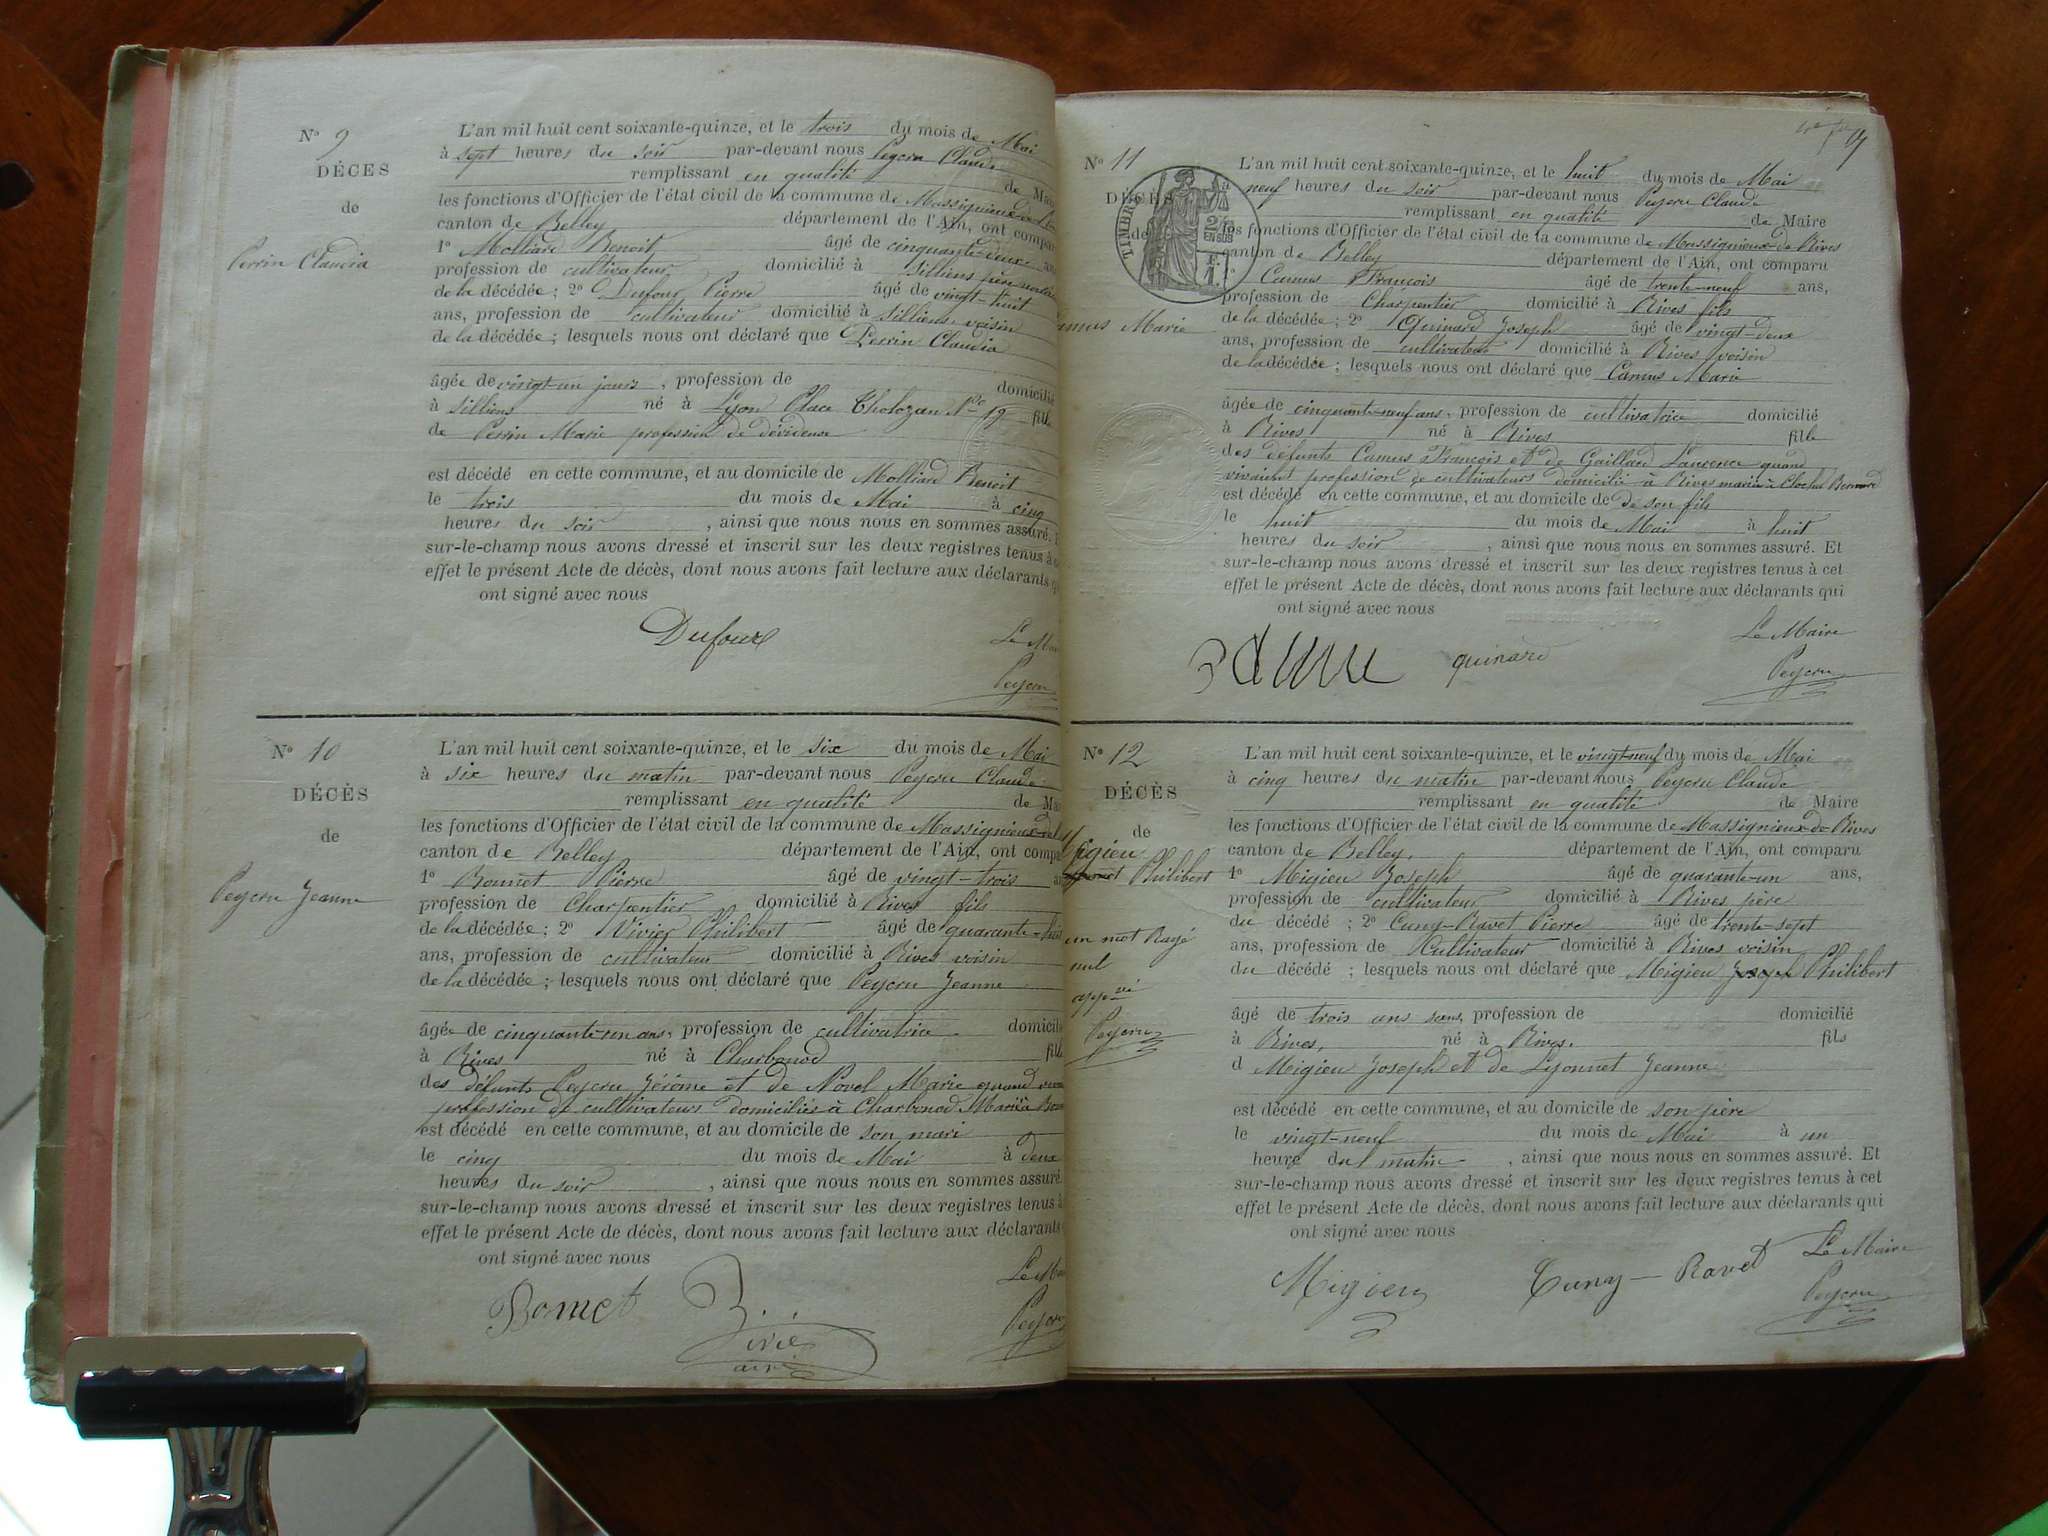 N° 9
DÉCÈS
de
Perrin Claudia
L'an mil huit cent soixante-quinze, et le trois du mois de Mai
à sept heures du soir par-devant nous Peycru Claude
remplissant en qualité de Mai
les fonctions d'Officier de l'état civil de la commune de Massignieux de
canton de Belley département de l'Ain, ont compar
1° Molliard Benoit âgé de cinquante-deux ans
profession de cultivateur domicilié à Silliens père
de la décédée ; 2° Dufour Pierre âgé de vingt-huit
ans, profession de cultivateur domicilié à Silliens voisin
de la décédée ; lesquels nous ont déclaré que Perrin Claudia
âgée de vingt-un jours, profession de domicilié
à Silliens né à Lyon Place Tholozan N° 19 fille
de Perrin Marie profession de dévideuse
est décédé en cette commune, et au domicile de Molliard Benoit
le trois du mois de Mai à cinq
heures du soir, ainsi que nous nous en sommes assuré.
sur-le-champ nous avons dressé et inscrit sur les deux registres tenus à
effet le présent Acte de décès, dont nous avons fait lecture aux déclarants
ont signé avec nous
Dufour
Le Ma
Peycru
N° 10
DÉCÈS
de
Peycru Jeanne
L'an mil huit cent soixante-quinze, et le six du mois de Mai
à six heures du matin par-devant nous Peycru Claude
remplissant en qualité de Mai
les fonctions d'Officier de l'état civil de la commune de Massignieux de
canton de Belley département de l'Ain, ont compa
1° Bonnet Pierre âgé de vingt-trois
profession de Charpentier domicilié à Rives fils
de la décédée ; 2° Vivier Philibert âgé de quarante-
ans, profession de cultivateur domicilié à Rives voisin
de la décédée ; lesquels nous ont déclaré que Peycru Jeanne
âgée de cinquante-un ans, profession de cultivatrice domicilié
à Rives né à Charbonod fille
des défunts Peycru Jérôme et de Novel Marie quand
profession de cultivateurs domiciliés à Charbonod Mariée à
est décédé en cette commune, et au domicile de son mari
le cinq du mois de Mai à deux
heures du soir, ainsi que nous nous en sommes assuré.
sur-le-champ nous avons dressé et inscrit sur les deux registres tenus à
effet le présent Acte de décès, dont nous avons fait lecture aux déclarants
ont signé avec nous
Bonnet
Le Ma
Peycru
9
N° 11
DÉCÈS
de
TIMBRE
2/10 EN SUS
F.
1.
Camus Marie
L'an mil huit cent soixante-quinze, et le huit du mois de Mai
à neuf heures du soir par-devant nous Peycru Claude
remplissant en qualité de Maire
les fonctions d'Officier de l'état civil de la commune de Massignieux de Rives
canton de Belley département de l'Ain, ont comparu
1° Camus François âgé de trente-neuf ans,
profession de Charpentier domicilié à Rives fils
de la décédée ; 2° Quinard Joseph âgé de vingt-deux
ans, profession de cultivateur domicilié à Rives voisin
de la décédée ; lesquels nous ont déclaré que Camus Marie
âgée de cinquante-neuf ans, profession de cultivatrice domicilié
à Rives né à Rives fille
des défunts Camus François et de Gaillard Laurence quand
vivaient profession de cultivateurs domicilié à Rives mariée à
est décédé en cette commune, et au domicile de de son fils
le huit du mois de Mai à huit
heures du soir, ainsi que nous nous en sommes assuré. Et
sur-le-champ nous avons dressé et inscrit sur les deux registres tenus à cet
effet le présent Acte de décès, dont nous avons fait lecture aux déclarants qui
ont signé avec nous
quinard
Le Maire
Peycru
N° 12
DÉCÈS
de
Migieu
Philibert
un mot Rayé
nul
appvé
Peycru
L'an mil huit cent soixante-quinze, et le vingt-neuf du mois de Mai
à cinq heures du matin par-devant nous Peycru Claude
remplissant en qualité de Maire
les fonctions d'Officier de l'état civil de la commune de Massignieux de Rives
canton de Belley, département de l'Ain, ont comparu
1° Migieu Joseph âgé de quarante-un ans,
profession de cultivateur domicilié à Rives père
du décédé ; 2° Cuny-Ravet Pierre âgé de trente-sept
ans, profession de Cultivateur domicilié à Rives voisin
du décédé ; lesquels nous ont déclaré que Migieu Joseph Philibert
âgé de trois ans, profession de domicilié
à Rives, né à Rives. fils
d Migieu Joseph et de Lyonnet Jeanne
est décédé en cette commune, et au domicile de son père
le vingt-neuf du mois de Mai à un
heure du matin, ainsi que nous nous en sommes assuré. Et
sur-le-champ nous avons dressé et inscrit sur les deux registres tenus à cet
effet le présent Acte de décès, dont nous avons fait lecture aux déclarants qui
ont signé avec nous
Migieu
Cuny-Ravet
Le Maire
Peycru